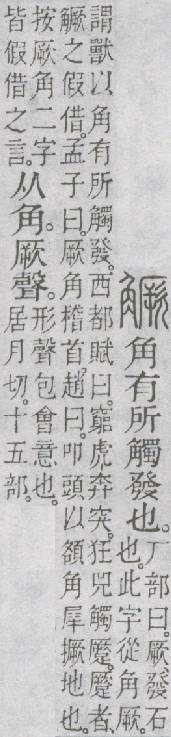 𧤼角有所觸發也。
厂部曰。厥、發石
也。此字從角厥。
謂獸以角有所觸發。西都賦曰。窮虎奔突。狂兕觸蹷。蹷者、
𧤼之假借。孟子曰。厥角𥡴首。趙曰。叩頭以額角犀撅地也。
按厥角二字
皆假借之言。
从角。厥聲。
形聲包會意也。
居月切。十五部。